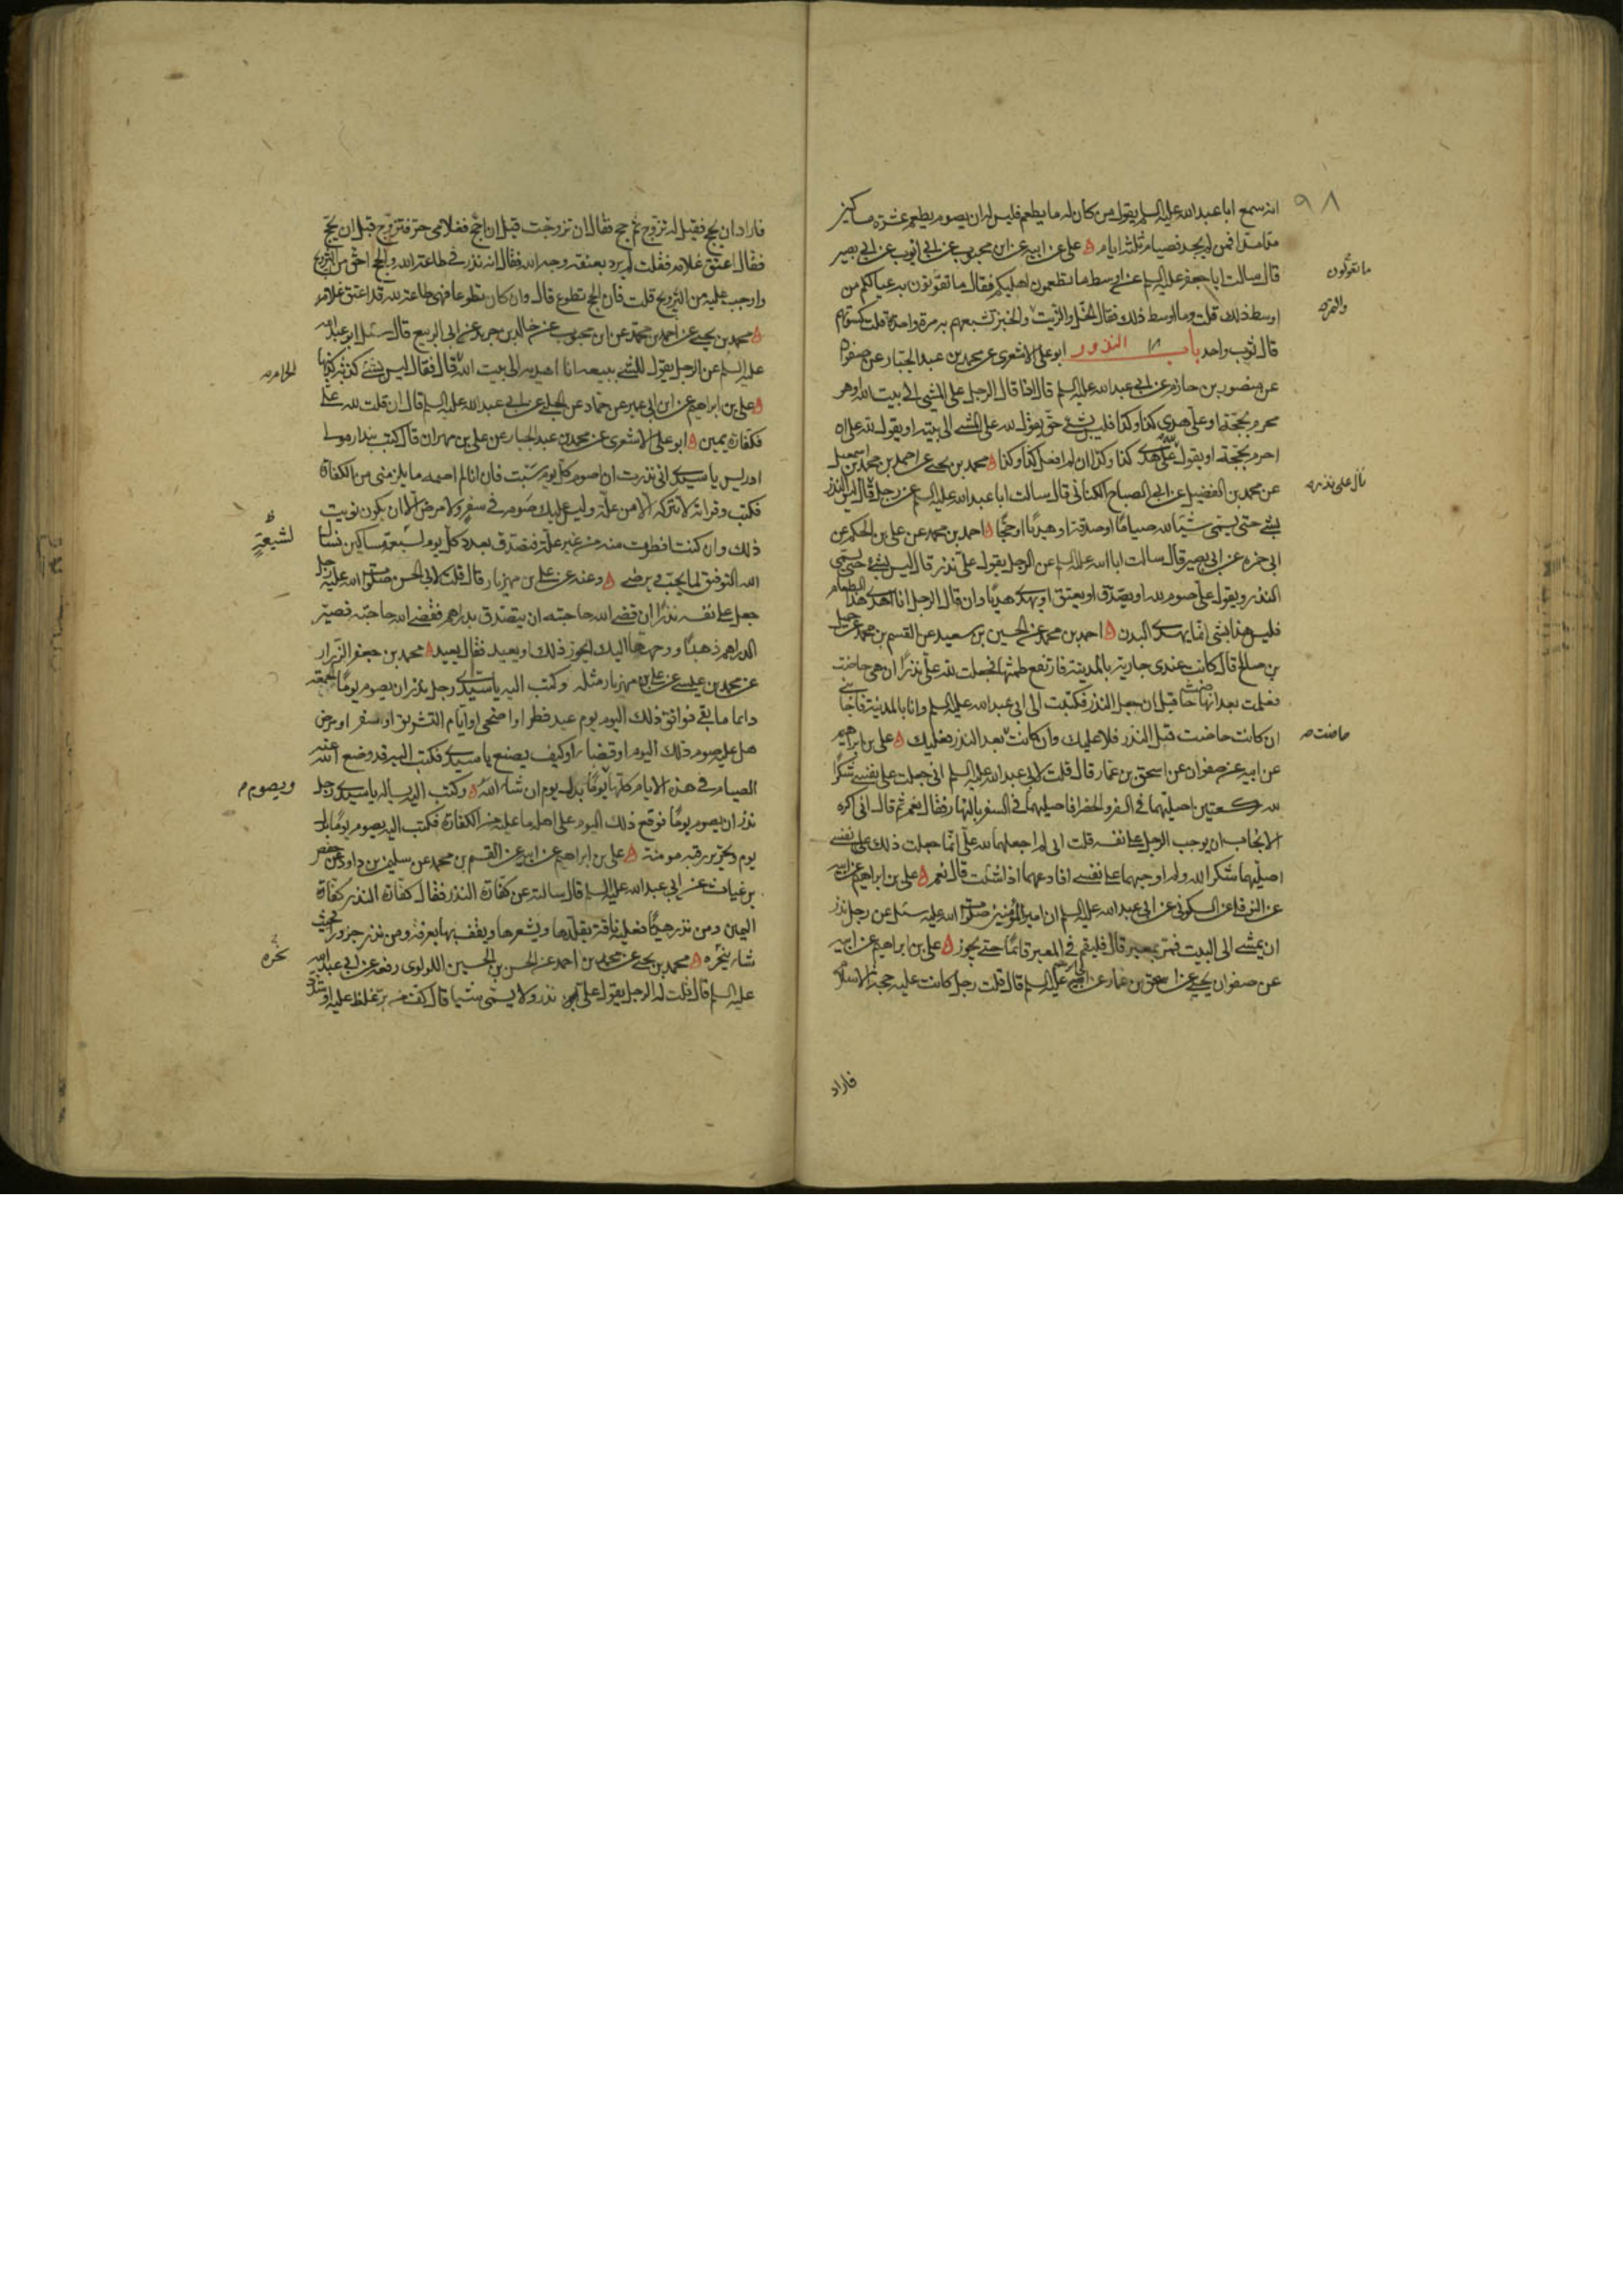 ٩٨
انه سمع ابا عبد الله عليه السلم يقول من كان له ما يطعم فليس له ان يصوم يطعم عشرة مساكين
مدا مدا فمن لم يجد فصيام ثلثة ايام علي عن ابيه عن ابن محبوب عن ابي ايوب عن ابي بصير
قال سالت ابا جعفر عليه السلم عن اوسط ما تطعمون اهليكم فقال ما تقوتون به عيالكم من
ما تقوتون
اوسط ذلك قلت وما اوسط ذلك فقال الخل والزيت والخبز تشبعهم به مرة واحدة قلت كسوتهم
والتمر
قال ثوب واحد باب النذور ابو علي الاشعري عن محمد بن عبد الجبار عن صفوان
عن منصور بن حازم عن ابي عبد الله عليه السلم قال اذا قال الرجل علي المشي الى بيت الله وهو
محرم بحجة او علي هدي كذا وكذا فليس بشئ حتى يقول لله علي المشي الى بيته او يقول لله علي ان
احرم بحجة او يقول لله علي هدي كذا وكذا ان لم افعل كذا وكذا محمد بن يحيى عن احمد بن محمد بن اسمعيل
عن محمد بن الفضيل عن ابي الصباح الكناني قال سالت ابا عبد الله عليه السلم عن رجل قال ليس النذر
قال علي نذر
بشئ حتى يسمي شيئا لله صياما او صدقة او هديا او حجا احمد بن محمد عن علي بن الحكم عن
ابي حمزه عن ابي بصير قال سالت ابا عبد الله عليه السلم عن الرجل يقول علي نذر قال ليس بشئ حتى يسمي
النذر ويقول علي صوم لله او يصدق او يعتق او يهدي هديا وان قال الرجل انا اهدي هذا الطعام
فليس هذا بشئ انما يهدى البدن احمد بن محمد عن الحسين بن سعيد عن القسم بن محمد عن جميل
بن صالح قال كانت عندي جارية بالمدينة فارتفع طمثها فجعلت لله علي نذرا ان هي حاضت
فعلمت بعد انها حاضت قبل ان يجعل النذر فكتبت الى ابي عبد الله عليه السلم وانا بالمدينة فاجابني
ان كانت حاضت قبل النذر فلا عليك وان كانت بعد النذر فعليك علي بن ابراهيم
حاضت
عن ابيه عن صفوان عن اسحق بن عمار قال قلت لابي عبد الله عليه السلم اني جعلت على نفسي شكرا
لله ركعتين اصليهما في السفر والحضر افاصليهما في السفر بالنهار فقال نعم ثم قال اني اكره
الايجاب ان يوجب الرجل على نفسه قلت اني لم اجعلهما لله علي انما جعلت ذلك على نفسي
اصليهما شكرا لله ولم اوجبهما على نفسي افادعهما اذا شئت قال نعم علي بن ابراهيم عن ابيه
عن النوفلي عن السكوني عن ابي عبد الله عليه السلم ان امير المؤمنين صلوات الله عليه سئل عن رجل نذر
ان يمشي الى البيت فمر بمعبر قال فليقم في المعبر قائما حتى يجوز علي بن ابراهيم عن ابيه
عن صفوان بن يحيى عن اسحق بن عمار عن ابي ابراهيم عليه السلم قال قلت رجل كانت عليه حجة الاسلام
فاراد
فاراد ان يحج فقيل له تزوج ثم حج فقال ان تزوجت قبل ان احج فغلامي حر فتزوج قبل ان يحج
فقال اعتق غلامه فقلت لم يرد بعتقه وجه الله فقال انه نذر في طاعة الله والحج احق من التزويج
واوجب عليه من التزويج قلت فان الحج تطوع قال وان كان تطوعا فهي طاعة لله قد اعتق غلامه
محمد بن يحيى عن احمد بن محمد عن ابن محبوب عن خالد بن جرير عن ابي الربيع قال سئل ابو عبد الله
عليه السلم عن الرجل يقول للشئ يبيعه انا اهديه الى بيت الله قال فقال ليس بشئ كذبة كذبها
علي بن ابراهيم عن ابن ابي عمير عن حماد عن الحلبي عن ابي عبد الله عليه السلم قال ان قلت لله علي
فكفارة يمين ابو علي الاشعري عن محمد بن عبد الجبار عن علي بن مهران قال كتب بندار مولى
ادريس يا سيدي اني نذرت ان اصوم كل يوم سبت فان انا لم اصمه ما يلزمني من الكفارة
فكتب وقراته لا تتركه الا من علة وليس عليك صومه في سفر ولا مرض الا ان يكون نويت
ذلك وان كنت افطرت منه من غير علة فتصدق بعدد كل يوم لسبعة مساكين نسال
الله التوفيق لما يحب ويرضى وعنه عن علي بن مهزيار قال قلت لابي الحسن صلوات الله عليه رجل
جعل على نفسه نذرا ان قضى الله حاجته ان يتصدق بدراهم فقضى الله حاجته فصير
الدراهم ذهبا ووجهها اليك ايجوز ذلك او يعيد فقال يعيد محمد بن جعفر الرزار
عن محمد بن عيسى عن علي بن مهزيار مثله وكتب اليه يا سيدي رجل نذر ان يصوم يوما الجمعة
دائما ما بقي فوافق ذلك اليوم يوم عيد فطر او اضحى او ايام التشريق او سفر او مرض
هل عليه صوم ذلك اليوم او قضاؤه او كيف يصنع يا سيدي فكتب اليه قد وضع الله عنه
الصيام في هذه الايام كلها يوما بدل يوم ان شاء الله وكتب اليه يساله يا سيدي رجل
ويصوم
نذر ان يصوم يوما فوقع ذلك اليوم على اهله ما عليه من الكفارة فكتب اليه يصوم يوما بدل
يوم وتحرير رقبه مومنة علي بن ابراهيم عن ابيه عن القسم بن محمد عن سليمن بن داود عن حفص
بن غياث عن ابي عبد الله عليه السلم قال سالته عن كفارة النذر فقال كفارة النذر كفارة
اليمين ومن نذر هديا فعليه ناقة يقلدها ويشعرها ويقف بها بعرفة ومن نذر جزورا فحيث
شاء ينحره محمد بن يحيى عن محمد بن احمد عن الحسن بن الحسين اللولوي رفعه عن ابي عبد الله
نحره
عليه السلم قال قلت له الرجل يقول علي نذر ولا يسمي شيئا قال كف من بر غلظ عليه او شدد